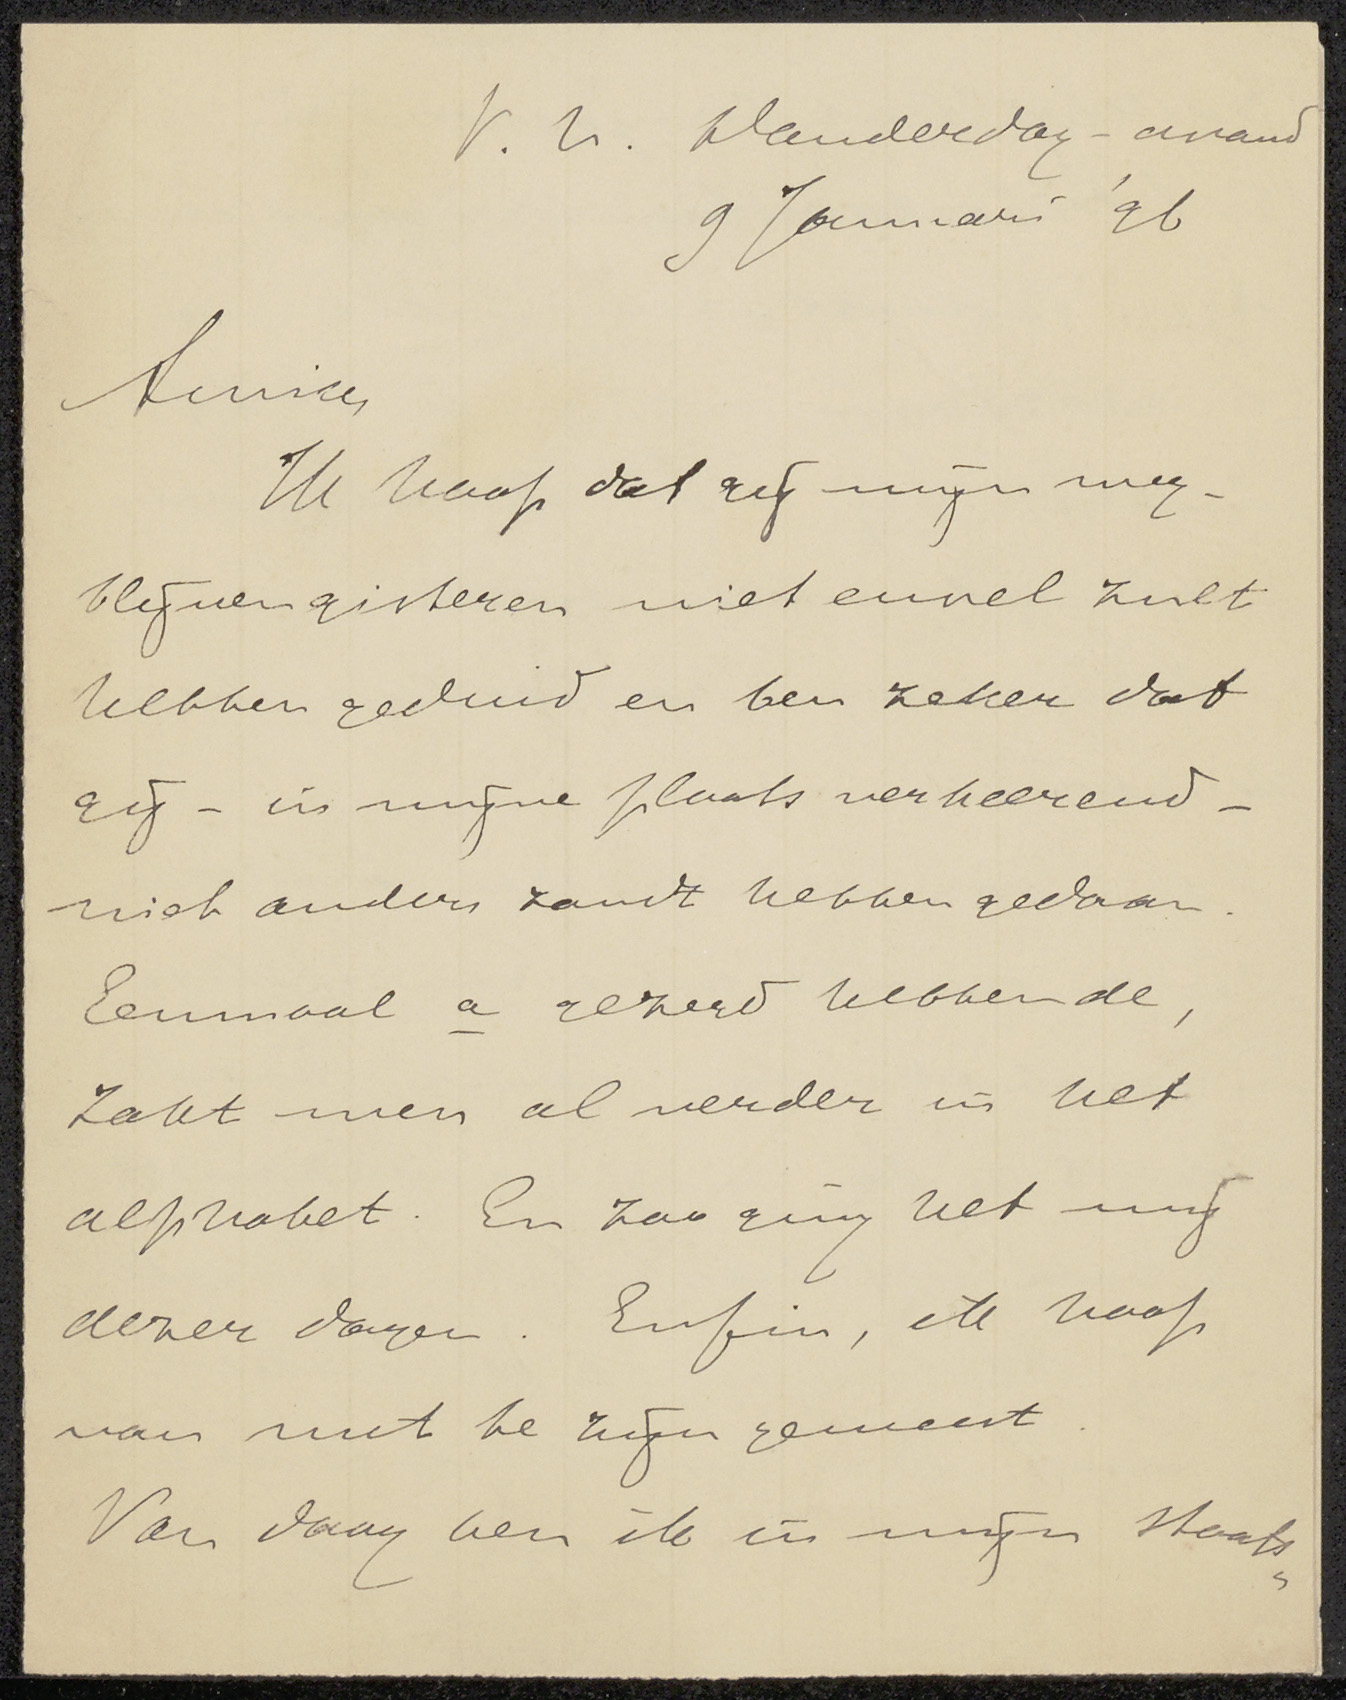 V. h. Donderdag-avond
9 Januari '96
Amice,
Ik hoop dat gij mijn weg-
blijven gisteren niet euvel zult
hebben geduid en ben zeker dat
gij - in mijne plaats verkeerend -
niet anders zoudt hebben gedaan.
Eenmaal a gezegd hebbende,
zakt men al verder in het
alphabet. En zoo ging het mij
dezer dagen. Enfin, ik hoop
van nut te zijn geweest.
Van daag ben ik in mijn Staats